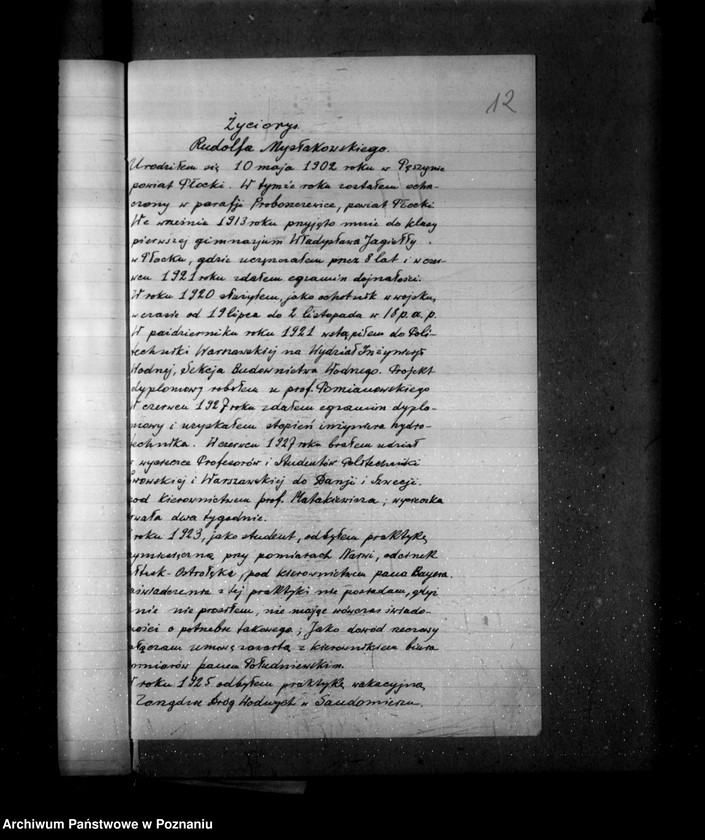 12
Życiorys
Rudolfa Mysłakowskiego.
Urodziłem się 10 maja 1902 roku w
powiat Płocki. W tymże roku zostałem och-
czony w parafji Proboszczewice, powiat Płocki
We wrześniu 1913 roku przyjęto mnie do klasy
pierwszej gimnazjum Władysława Jagiełły
w Płocku, gdzie uczęszczałem przez 8 lat i w czer-
wcu 1921 roku zdałem egzamin dojrzałości.
W roku 1920 służyłem, jako ochotnik w wojsku,
w czasie od 19 lipca do 2 listopada w 18 p.a.p.
W październiku roku 1921 wstąpiłem do Poli-
techniki Warszawskiej na Wydział Inżynierji
Wodnej, Sekcja Budownictwa Wodnego. Projekt
dyplomowy robiłem u prof. Pomianowskiego
W czerwcu 1927 roku zdałem egzamin dyplo-
mowy i uzyskałem stopień inżyniera hydro-
technika. W czerwcu 1927 roku brałem udział
w wycieczce Profesorów i Studentów Politechniki
wowskiej i Warszawskiej do Danji i Szwecji.
pod kierownictwem prof. Matakiewicza; wycieczka
wała dwa tygodnie.
roku 1923, jako student, odbyłem praktykę
ymiesięczną przy pomiarach Narwi, odcinek
łtusk-Ostrołęka, pod kierownictwem pana Bayera.
aświadczenia z tej praktyki nie posiadam, gdyż
nie nie prosiłem, nie mając wówczas świado-
mości o potrzebie takowego; Jako dowód rzeczowy
ołączam umowę zawartą z kierownikiem biura
omiarów panem Południewskim.
roku 1925 odbyłem praktykę wakacyjną
Zarządzie Dróg Wodnych w Sandomierzu.
Archiwum Państwowe w Poznaniu